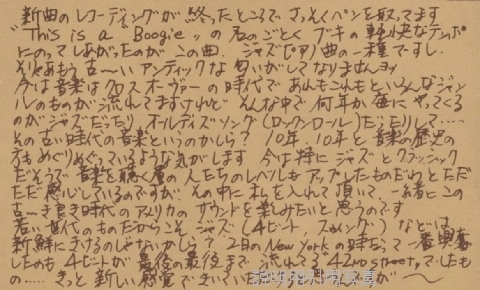 新曲のレコーディングが終ったところでさっそくペンを取ってます
"This is a "Boogie"" の名のごとく ブギの軽快なテンポ
にのってしあがったのがこの曲. ジャズピアノ曲の一種ですし.
そりゃあもう古〜いアンティックな匂いがしてなりませんヨッ
今は音楽はクロスオーヴァーの時代であれもこれもといろんなジャン
ルのものが流れてますけれど そんな中で何年か毎にやってくる
のがジャズだったり、オールディズソング(ロックンロール)だったりして……
その古い時代の音楽というのかしら? 10年、10年と音楽の歴史の
方もめぐりめぐっているような気がします 今は特にジャズとクラッシック
だそうで 音楽を聴く層の人たちのレベルもアップしたものだわとただ
ただ感じているのですが、その中に私を入れて頂いて 一緒にこの
古〜き良き時代のアメリカのサウンドを楽しみたいと思うのです
若い世代のものだからこそ ジャズ (4ビート, スウィング) などは
新鮮にきけるのじゃないかしら? 2日のNew Yorkの時だって一番興奮
したのも 4ビートが最後の最後まで流れてる 42nd street, でしたも
の…… きっと新しい感覚できいていただける